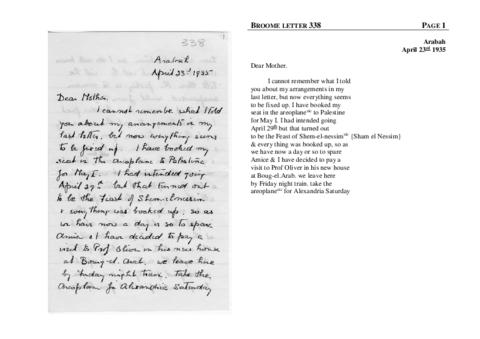 338
Arabah
April 23rd 1935
Dear Mother.
I cannot remember what I told
you about my arrangements in my
last letter, but now everything seems
to be fixed up. I have booked my
seat in the areoplane to Palestine
for May I. I had intended going
April 29th but that turned out
to be the Feast of Shem-el-nessim
& everything was booked up, so as
we have now a day or so to spare
Amice & I have decided to pay a
visit to Prof Oliver in his new house
at Boug-el.Arab. we leave here
by Friday night train. take the
areoplane for Alexandria Saturday
BROOME LETTER 338 PAGE 1
Arabah
April 23rd 1935
Dear Mother.
I cannot remember what I told
you about my arrangements in my
last letter, but now everything seems
to be fixed up. I have booked my
seat in the areoplane^sic to Palestine
for May I. I had intended going
April 29th but that turned out
to be the Feast of Shem-el-nessim^sic {Sham el Nessim}
& everything was booked up, so as
we have now a day or so to spare
Amice & I have decided to pay a
visit to Prof Oliver in his new house
at Boug-el.Arab. we leave here
by Friday night train. take the
areoplane^sic for Alexandria Saturday